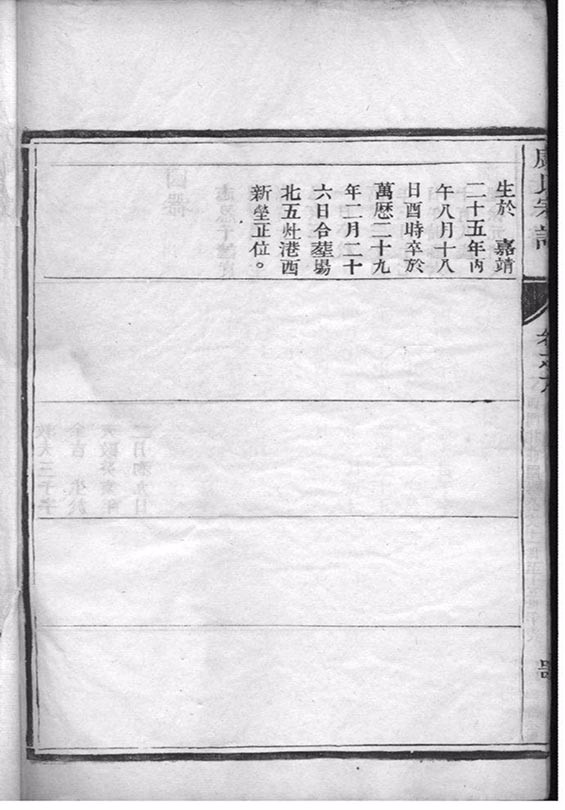 生於　嘉靖
二十五年內
午八月十八
日酉時卒於
萬歷二十九
年二月二十
六日合塟場
北五灶港西
新塋正位。
氏宗譜